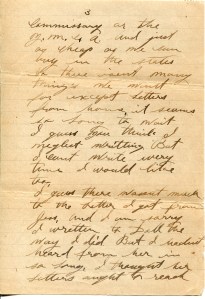 3
Commissary or the
Y.M.C.A and just
as cheap as we can
buy in the states
so there isent many
things we must
for except letters
from home, it seems
so long to wait.
I guess you think I
neglect writting But
I cant write every
time I would like
to,
I guess there wasent much
to the letter I got from
Jess, and I am sorry
I written to Dall the
way I did But I hadent
heard from her in
so long, I thought her
letters ought to read